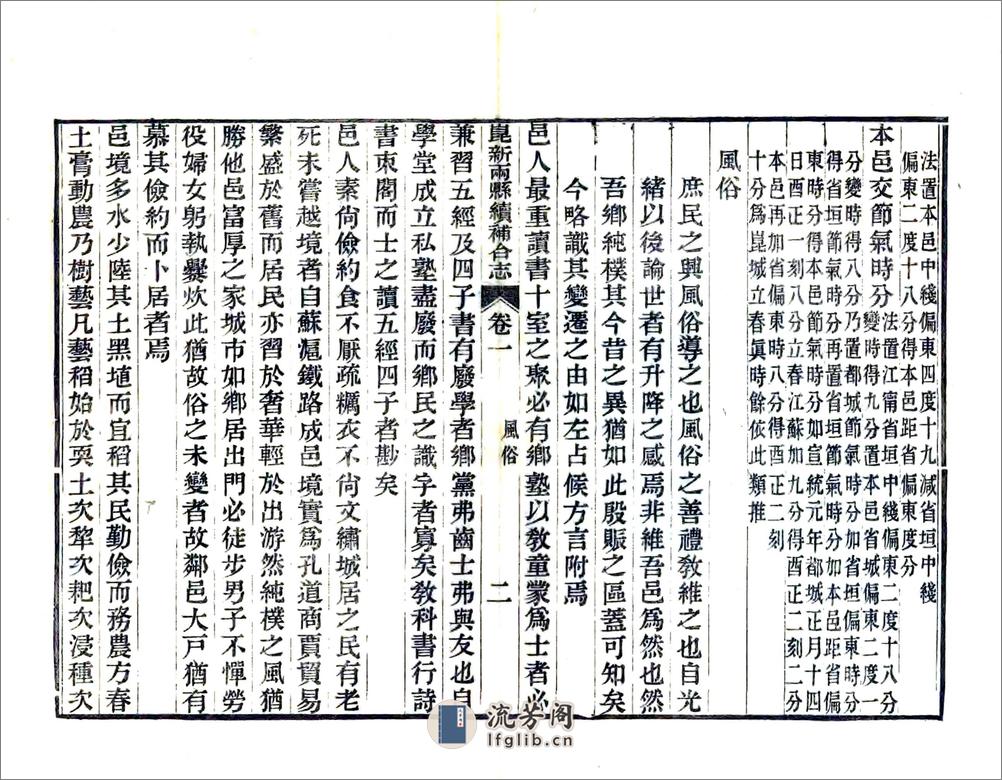 法置本邑中綫偏東四度十九減省垣中綫
偏東二度十八分得本邑距省偏東度分
本邑交節氣時分法置江甯省垣中綫偏東二度十八分
變時得九分置本邑省城偏東二度一
分變時得八分乃置都城節氣時分加省垣偏東時分
得省垣節氣時分再置省垣節氣時分加本邑距省偏
東時分得本邑節氣時分如宣統元年都城正月十四
日酉正一刻八分立春江蘇加九分得酉正二刻二分
本邑再加省偏東時八分得酉正二刻
十分爲崑城立春眞時餘依此類推
風俗
庶民之興風俗導之也風俗之善禮敎維之也自光
緒以後論世者有升降之感焉非維吾邑爲然也然
吾鄉純樸其今昔之異猶如此殷賑之區蓋可知矣
今略識其變遷之由如左占候方言附焉
邑人最重讀書十室之聚必有鄉塾以敎童蒙爲士者必
崑新兩縣續補合志 卷一 風俗 二
兼習五經及四子書有廢學者鄉黨弗齒士弗與友也自
學堂成立私塾盡廢而鄉民之識字者寡矣敎科書行詩
書束閣而士之讀五經四子者尠矣
邑人素尙儉約食不厭疏糲衣不尙文繡城居之民有老
死未嘗越境者自蘇滬鐵路成邑境實爲孔道商賈貿易
繁盛於舊而居民亦習於奢華輕於出游然純樸之風猶
勝他邑富厚之家城市如鄉居出門必徒步男子不憚勞
役婦女躬執爨炊此猶故俗之未變者故鄰邑大戸猶有
慕其儉約而卜居者焉
邑境多水少陸其土黑埴而宜稻其民勤儉而務農方春
土膏動農乃樹藝凡藝稻始於耎土次犂次耙次浸種次
流芳阁
lfglib.cn